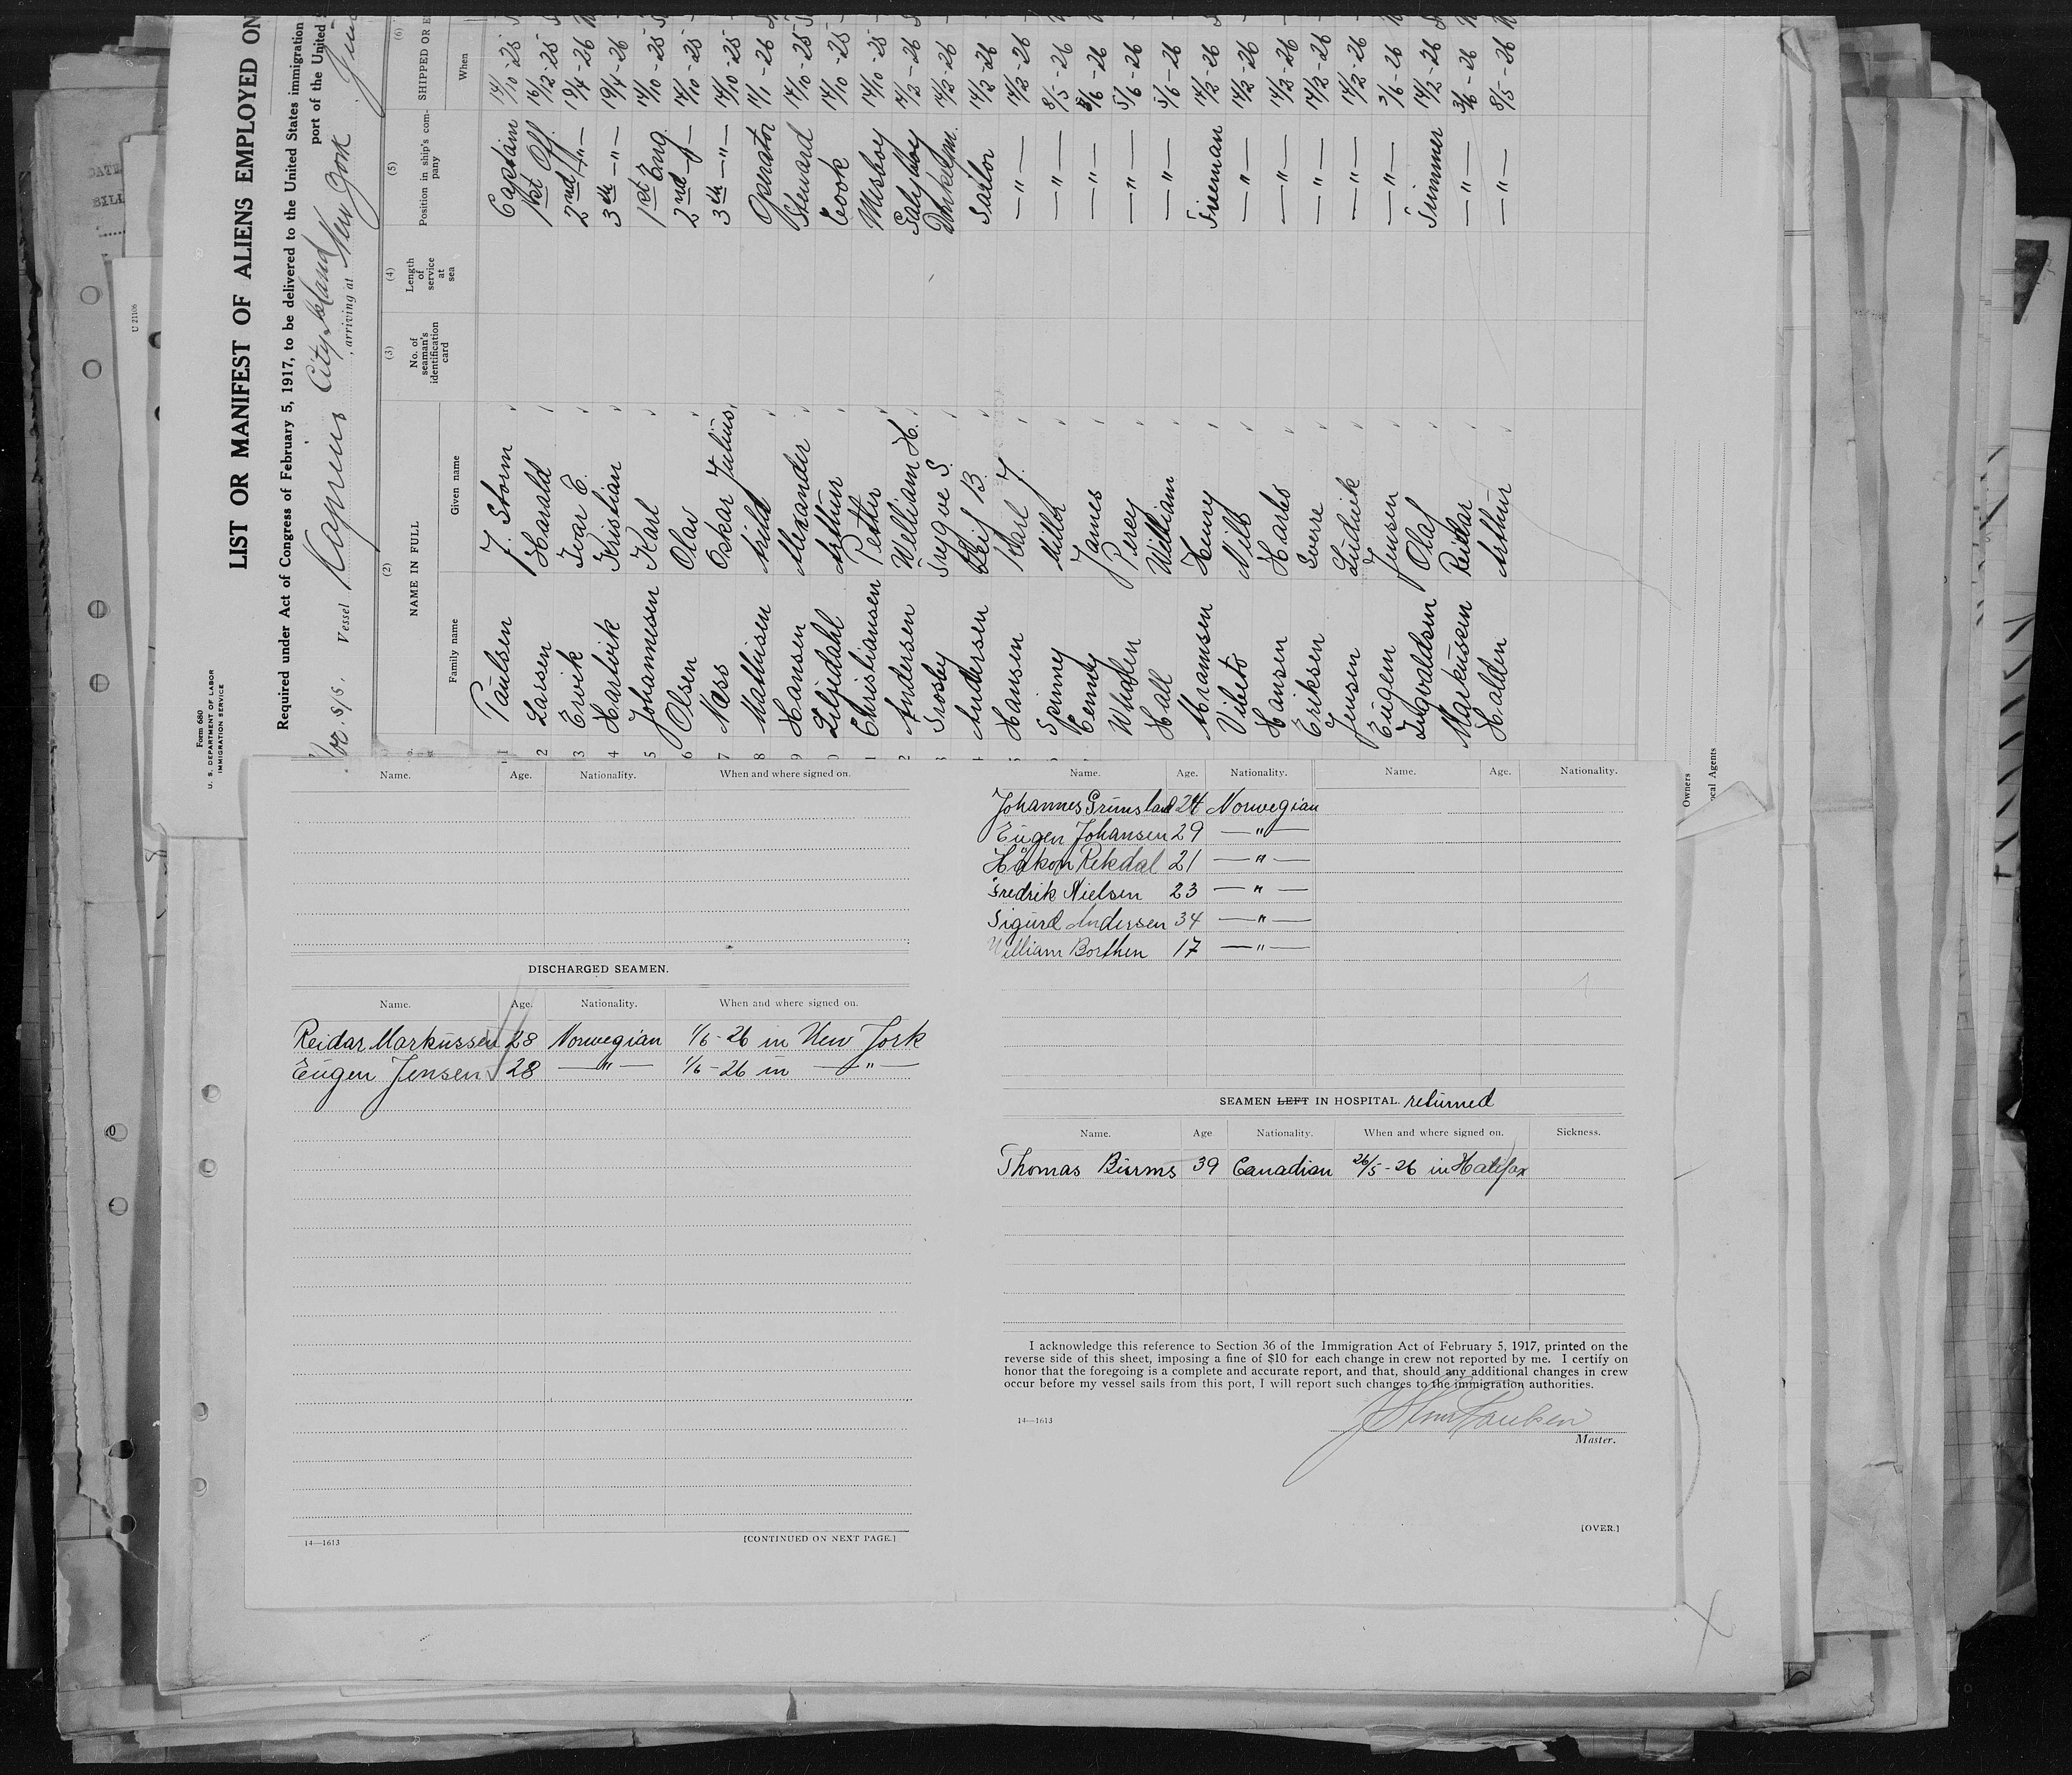 Form 680
U. S. DEPARTMENT OF LABOR
IMMIGRATION SERVICE
LIST OR MANIFEST OF ALIENS EMPLOYED ON
Required under Act of Congress of February 5, 1917, to be delivered to the United States immigration
port of the United
Vessel City Island, arriving at New York
(2) (3) (4) (5) (6)
NAME IN FULL No. of seaman's identification card Length of service at sea Position in ship's company SHIPPED OR E
Family name Given name When
1 Paulsen J. Storm Captain 14/10-25
2 Larsen Harald 1st Off. 16/12-25
3 Ervik Ivar E. 2nd —"— 19/4-26
4 Harlvik Kristian 3th —"— 19/4-26
5 Johannesen Karl 1st Eng. 14/10-25
6 Olsen Olav 2nd —"— 14/10-25
7 Næss Oskar Julius 3th —"— 14/10-25
8 Mathisen Arild Operator 14/1-26
9 Hansen Alexander Steward 14/10-25
0 Liljedahl Arthur Cook 14/10-25
1 Christiansen Petter Messboy 14/10-25
2 Andersen William H. 14/2-26
3 Trygve S. 14/2-26
4 Andersen Leif B. Sailor 14/2-26
5 Hansen Karl J. —"— 14/2-26
Spinney —"— 8/5-26
James —"— 8/6-26
Percy —"— 5/6-26
Hall William —"— 5/6-26
Henry Fireman 14/2-26
Nils —"— 14/2-26
Hansen —"— 14/2-26
Eriksen Sverre —"— 14/2-26
Jensen Ludvik —"— 14/2-26
Eugen Jensen —"—
Ingvaldsen Olaf Trimmer 14/2-26
Markussen Reidar —"—
Halden Arthur —"— 8/5-26
Owners
ocal Agents
U 21106
Name. Age. Nationality. When and where signed on.
DISCHARGED SEAMEN.
Name. Age. Nationality. When and where signed on.
Reidar Markussen 28 Norwegian 1/6-26 in New York
Eugen Jensen 28 —"— 1/6-26 in —"—
14—1613 [CONTINUED ON NEXT PAGE.]
Name. Age. Nationality. Name. Age. Nationality.
Johannes Grimsland 24 Norwegian
Eugen Johansen 29 —"—
Håkon Rekdal 21 —"—
Fredrik Nielsen 23 —"—
Sigurd Andersen 34 —"—
William Borthen 17 —"—
SEAMEN LEFT IN HOSPITAL. returned
Name. Age Nationality. When and where signed on. Sickness.
Thomas Burms 39 Canadian 26/5-26 in Halifax
I acknowledge this reference to Section 36 of the Immigration Act of February 5, 1917, printed on the
reverse side of this sheet, imposing a fine of $10 for each change in crew not reported by me. I certify on
honor that the foregoing is a complete and accurate report, and that, should any additional changes in crew
occur before my vessel sails from this port, I will report such changes to the immigration authorities.
J Storm Paulsen
14—1613
Master.
[OVER.]